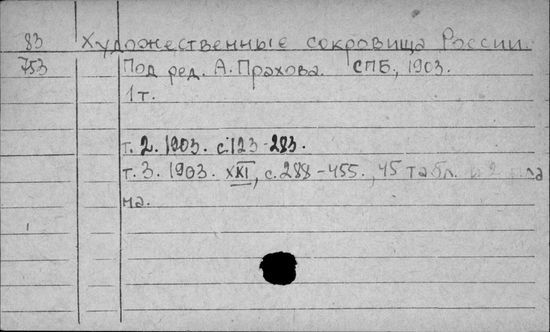 83 Художественные сокровища России.
753 Под ред. А. Прахова. СПБ, 1903.
1 т.
т. 2. 1903. с. 123-283.
т. 3. 1903. XXI, с. 288-455., 45 табл. и 2 пла
на.